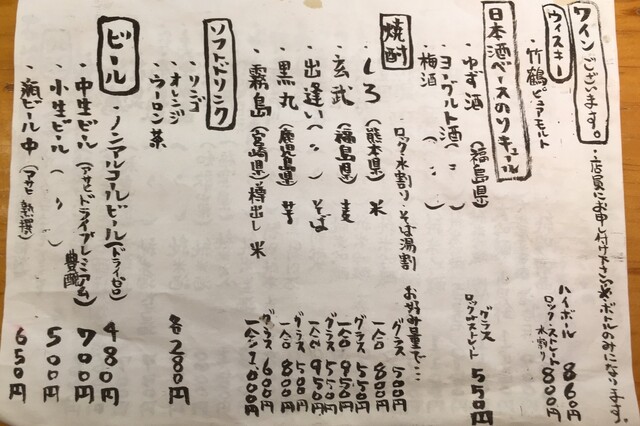 ワインございます。・店員にお申し付け下さい※ボトルのみになります。
ウィスキー
・竹鶴ピュアモルト
ハイボール 860円
ロック・ストレート 水割り 800円
日本酒ベースのリキュール
・ゆず酒 (福島県)
・ヨーグルト酒 ( 〃 )
・梅酒 ( 〃 )
グラス ロックorストレート 550円
焼酎
ロック、水割り・そば湯割 お好み量で…
・しろ (熊本県) 米
グラス 500円
一合 800円
・玄武 (福島県) 麦
グラス 550円
一合 950円
・出逢い ( 〃 ) そば
グラス 550円
一合 950円
・黒丸 (鹿児島県) 芋
グラス 500円
一合 800円
・霧島 (宮崎県) 樽出し 米
グラス 600円
一合 1,000円
ソフトドリンク
・リンゴ
・オレンジ
・ウーロン茶
各280円
ビール
・ノンアルコールビール(ドライゼロ) 480円
・中生ビール (アサヒドライプレミアム 豊醸) 700円
・小生ビール ( 〃 ) 500円
・瓶ビール中 (アサヒ熟撰) 650円